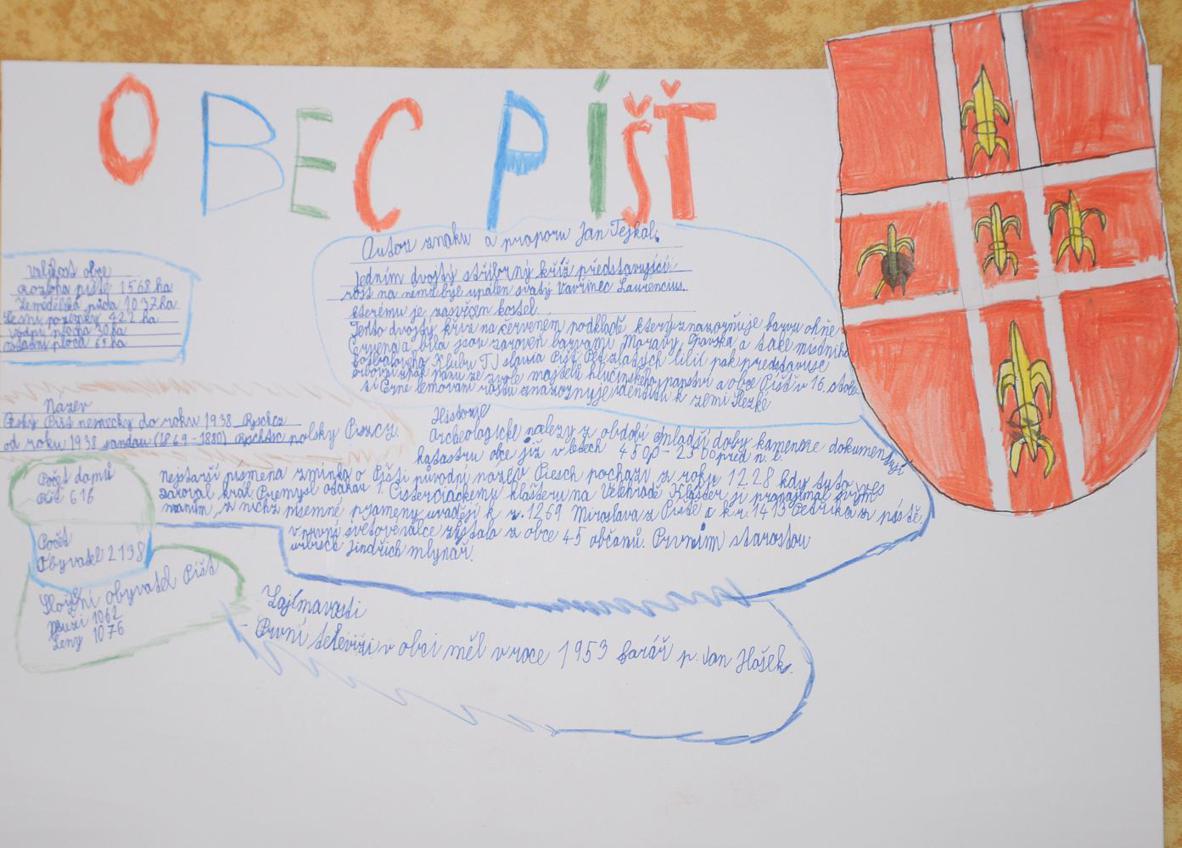 OBEC PÍŠŤ
Autor znaku a praporu Jan Tejkal.
Jedním dvojtý stříbrný kříž představující
rošt na němž byl upálen svatý Vavřinec Laurencius
kterému je zasvěcen kostel
Tento dvojtý kříž na červeném podkladě který znázorňuje barvu ohně
Červená a bílá jsou zároveň barvami Moravy, Opavska a také místního
fotbalového klubu TJ slavia Píšť Pět zlatých lilií pak představuje
majitelů hlučínského panství a obce Píšť v 16. stole
lemování roštu znázorňuje k zemi Slezké
Velikost obce
Rozloha píště 1568 ha
Zemědělská půda 1037 ha
Lesní pozemky 422 ha
vodní plocha 30 ha
ostatní ploca 69 ha
Název
Český Píšť německy do roku 1938 Pyschcz
od roku 1938 sandau (1869-1880) Pschtsc polsky Pszcz.
Historije
Archeologické nálezy z období mladší doby kamenné dokumentují
katastru obce již v letech 4500 - 2500 před n. l.
nejstarší písmená zmínka o Píšti původní název Pesch pochází z roku 1228 kdy tuto ves
daroval král Premysl otakar 1. Cisterciáckému klášteru na Velehradě Klášter ji pronajímal svým
manům, z nichž písemné prameny uvádějí k r. 1269 Miroslava z Píště a k r. 1413 Petříka z píště
v první světové válce z obce 45 občanů. Prvním starostou
Jindřich mlynář.
Počet domů
Píšť 616
Počet
Obyvatel 2138
Složení obyvatel Píšť
Muži 1062
Ženy 1076
Zajímavosti
- První televizi v obci měl v roce 1953 farář p. Jan Hošek.